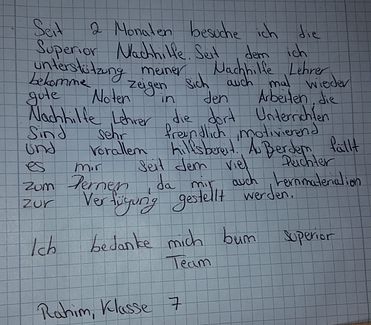 Seit 2 Monaten besuche ich die
Superior Nachhilfe. Seit dem ich
unterstützung meiner Nachhilfe Lehrer
bekomme zeigen sich auch mal wieder
gute Noten in den Arbeiten, die
Nachhilfe Lehrer die dort Unterrichten
Sind sehr freundlich, motivierend
und vorallem hilfsbereit. Außerdem fällt
es mir seit dem viel leichter
zum Lernen, da mir auch Lernmaterialien
zur Verfügung gestellt werden.
Ich bedanke mich bum superior
Team
Rahim, Klasse 7